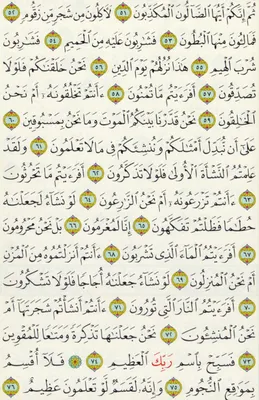 ثُمَّ إِنَّكُمْ أَيُّهَا ٱلضَّآلُّونَ ٱلْمُكَذِّبُونَ ٥١ لَءَاكِلُونَ مِن شَجَرٍ مِّن زَقُّومٍ ٥٢
فَمَالِـُٔونَ مِنْهَا ٱلْبُطُونَ ٥٣ فَشَٰرِبُونَ عَلَيْهِ مِنَ ٱلْحَمِيمِ ٥٤ فَشَٰرِبُونَ
شُرْبَ ٱلْهِيمِ ٥٥ هَٰذَا نُزُلُهُمْ يَوْمَ ٱلدِّينِ ٥٦ نَحْنُ خَلَقْنَٰكُمْ فَلَوْلَا
تُصَدِّقُونَ ٥٧ أَفَرَءَيْتُم مَّا تُمْنُونَ ٥٨ ءَأَنتُمْ تَخْلُقُونَهُۥٓ أَمْ نَحْنُ
ٱلْخَٰلِقُونَ ٥٩ نَحْنُ قَدَّرْنَا بَيْنَكُمُ ٱلْمَوْتَ وَمَا نَحْنُ بِمَسْبُوقِينَ ٦٠
عَلَىٰٓ أَن نُّبَدِّلَ أَمْثَٰلَكُمْ وَنُنشِئَكُمْ فِى مَا لَا تَعْلَمُونَ ٦١ وَلَقَدْ
عَلِمْتُمُ ٱلنَّشْأَةَ ٱلْأُولَىٰ فَلَوْلَا تَذَكَّرُونَ ٦٢ أَفَرَءَيْتُم مَّا تَحْرُثُونَ
٦٣ ءَأَنتُمْ تَزْرَعُونَهُۥٓ أَمْ نَحْنُ ٱلزَّٰرِعُونَ ٦٤ لَوْ نَشَآءُ لَجَعَلْنَٰهُ
حُطَٰمًا فَظَلْتُمْ تَفَكَّهُونَ ٦٥ إِنَّا لَمُغْرَمُونَ ٦٦ بَلْ نَحْنُ مَحْرُومُونَ
٦٧ أَفَرَءَيْتُمُ ٱلْمَآءَ ٱلَّذِى تَشْرَبُونَ ٦٨ ءَأَنتُمْ أَنزَلْتُمُوهُ مِنَ ٱلْمُزْنِ
أَمْ نَحْنُ ٱلْمُنزِلُونَ ٦٩ لَوْ نَشَآءُ جَعَلْنَٰهُ أُجَاجًا فَلَوْلَا تَشْكُرُونَ
٧٠ أَفَرَءَيْتُمُ ٱلنَّارَ ٱلَّتِى تُورُونَ ٧١ ءَأَنتُمْ أَنشَأْتُمْ شَجَرَتَهَآ أَمْ
نَحْنُ ٱلْمُنشِـُٔونَ ٧٢ نَحْنُ جَعَلْنَٰهَا تَذْكِرَةً وَمَتَٰعًا لِّلْمُقْوِينَ
٧٣ فَسَبِّحْ بِٱسْمِ رَبِّكَ ٱلْعَظِيمِ ٧٤ فَلَآ أُقْسِمُ
بِمَوَٰقِعِ ٱلنُّجُومِ ٧٥ وَإِنَّهُۥ لَقَسَمٌ لَّوْ تَعْلَمُونَ عَظِيمٌ ٧٦